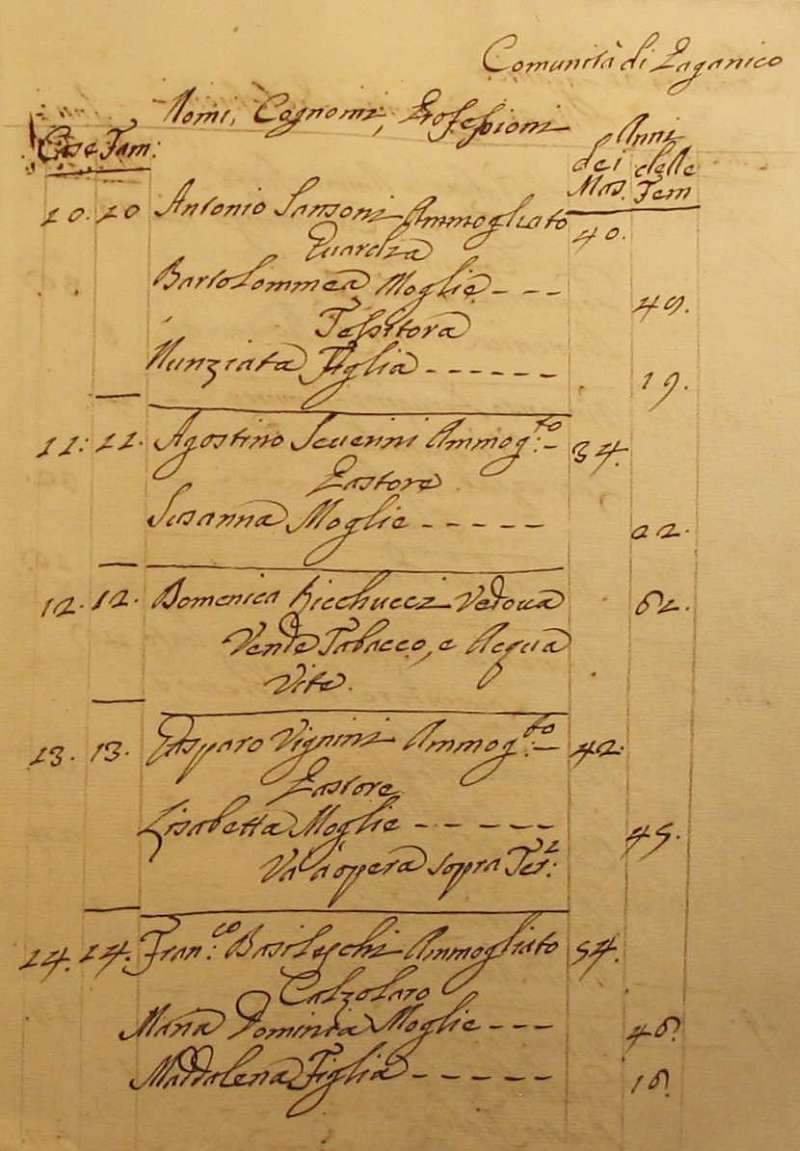 Comunità di Paganico
Nomi, Cognomi, Professioni
Anni
Case Fam:
dei delle
Mas. Fem
10. 10 Antonio Sansoni Ammogliato 40.
Guardia
Bartolommea Moglie - - - 49.
Tessitora
Nunziata Figlia - - - - - - 19.
11: 11. Agostino Severini Ammog:to - 34.
Pastore
Susanna Moglie - - - - - 22.
12. 12. Domenica Ricchucci Vedova 62.
Vende Tabacco, e Acqua
Vite.
13. 13. Gasparo Vignini Ammog:to - 42.
Pastore
Lisabetta Moglie - - - - - 45.
Va a opera sopra
14. 14. Fran:co Basileschi Ammogliato 54.
Calzolaro
Maria Dominia Moglie - - - 46.
Maddalena Figlia - - - - - 16.